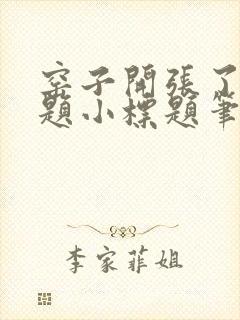 窑子開張了
題小標題筆
李家菲姐